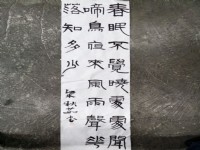 春眠不覺曉處處聞
啼鳥夜來風雨聲花
落知多少